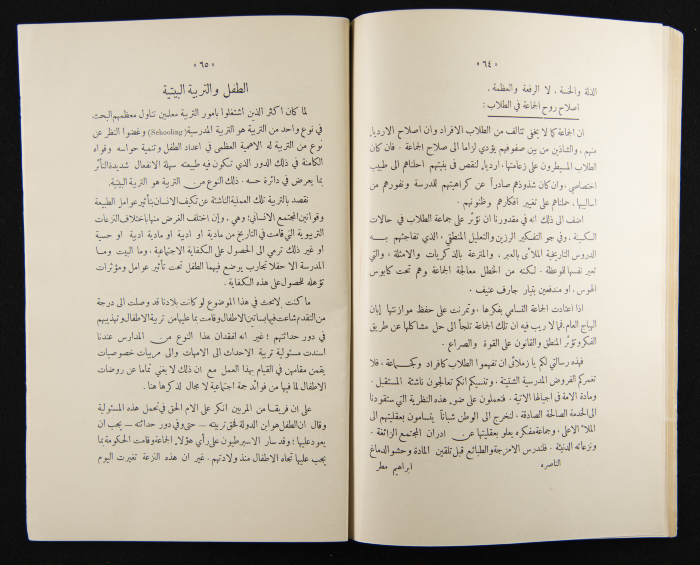 « ٦٤ »
الذلة والخسة ، لا الرفعة والعظمة .
اصلاح روح الجماعة في الطلاب :
ان الجماعة كما لا يخفى تتألف من الطلاب الافراد وان اصلاح الاردياء
منهم ، والشاذين من بين صفوفهم يؤدي لزاما الى صلاح الجماعة . فان كان
الطلاب المسيطرون على زعامتها ، اردياء لنقص في بنيتهم احلناهم الى طبيب
اختصاصي . وان كان شذوذهم صادراً عن كراهيتهم للمدرسة ونفورهم من
اساليبها ، حملناهم على تغيير افكارهم وظنونهم .
اضف الى ذلك انه في مقدورنا ان نؤثر على جماعة الطلاب في حالات
السكينة ، وفي جو التفكير الرزين والتعليل المنطقي . الذي تفاجئهم به
الدروس التاريخية الملأى بالعبر ، والمترعة بالذكريات والامثلة ، والتي
تعير نفسها للموعظة . لكنه من الخطل معالجة الجماعة وهم تحت كابوس
الهوس ، او مندفعين بتيار جارف عنيف .
اذا اعتادت الجماعة التسامي بفكرها ، وتمرنت على حفظ موازنتها إبان
الهياج العام ، فما لا ريب فيه ان تلك الجماعة تلجأ الى حل مشاكلها عن طريق
الفكر وتؤثر المنطق والقانون على القوة والصراع .
فهذه رسالتي لكم يا زملائي ان تفهموا الطلاب كافراد وكجماعة . فلا
تغمركم الفروض المدرسية الشتيتة . وتنسيكم انكم تعالجون ناشئة المستقبل .
ومادة الامة في اجيالها الاتية . فتعملون على ضوء هذه النظرية التي ستقودنا
الى الخدمة الصالحة الصادقة . لنخرج الى الوطن شباناً يتسامون بعقليتهم الى
الملأ الاعلى ، وجماعة مفكره يعلو بعقليتها عن ادران المجتمع الزائفة .
ونزعاته الدنيئة . فلندرس الامزجة والطبائع قبل تلقين المادة وحشو الدماغ
الناصره ابراهيم مطر
« ٦٥ »
الطفل والتربية البيتية
لما كان اكثر الذين اشتغلوا بامور التربية معلمين تناول معظمهم البحث
في نوع واحد من التربية هو التربية المدرسية (Schooling) وغضوا النظر عن
نوع من التربية له الاهمية العظمى في اعداد الطفل وتنمية حواسه وقواه
الكامنة في ذلك الدور الذي تكون فيه طبيعته سهلة الانفعال شديدة التأثر
بما يعرض في دائرة حسه . ذلك النوع من التربية هو التربية البيتية .
نقصد بالتربية تلك العملية الناشئة عن تكيف الانسان بتأثير عوامل الطبيعة
وقوانين المجتمع الانساني ؛ وهي ، وإن اختلف الغرض منها باختلاف النزعات
التربوية التي قامت في التاريخ من مادية او ادبية او مادية ادبية او حسية
او غير ذلك ترمي الى الحصول على الكفاية الاجتماعية . وما البيت وما
المدرسة الا حقلا تجارب يوضع فيهما الطفل تحت تأثير عوامل ومؤثرات
تؤهله للحصول على هذه الكفاية .
ما كنت لابحث في هذا الموضوع لو كانت بلادنا قد وصلت الى درجة
من التقدم شاعت فيها بساتين الاطفال وقامت بما عليها من تربية الاطفال وتهذيبهم
في دور حداثتهم ؛ غير انه لفقدان هذا النوع من المدارس عندنا
اسندت مسئولية تربية الاحداث الى الامهات والى مربيات خصوصيات
يقمن مقامهن في القيام بهذا العمل مع ان ذلك لا يغني تماما عن روضات
الاطفال لما فيها من فوائد جمة اجتماعية لا مجال لذكرها هنا .
على ان فريقا من المربين انكر على الام الحق في تحمل هذه المسئولية
وقال ان الطفل هو ابن الدولة فحق تربيته — حتى وفي دور حداثته — يجب ان
يعود عليها ؛ وقد سار الاسبرطيون على رأي هؤلاء الجماعة وقامت الحكومة بما
يجب عليها تجاه الاطفال منذ ولادتهم . غير ان هذه النزعة تغيرت اليوم